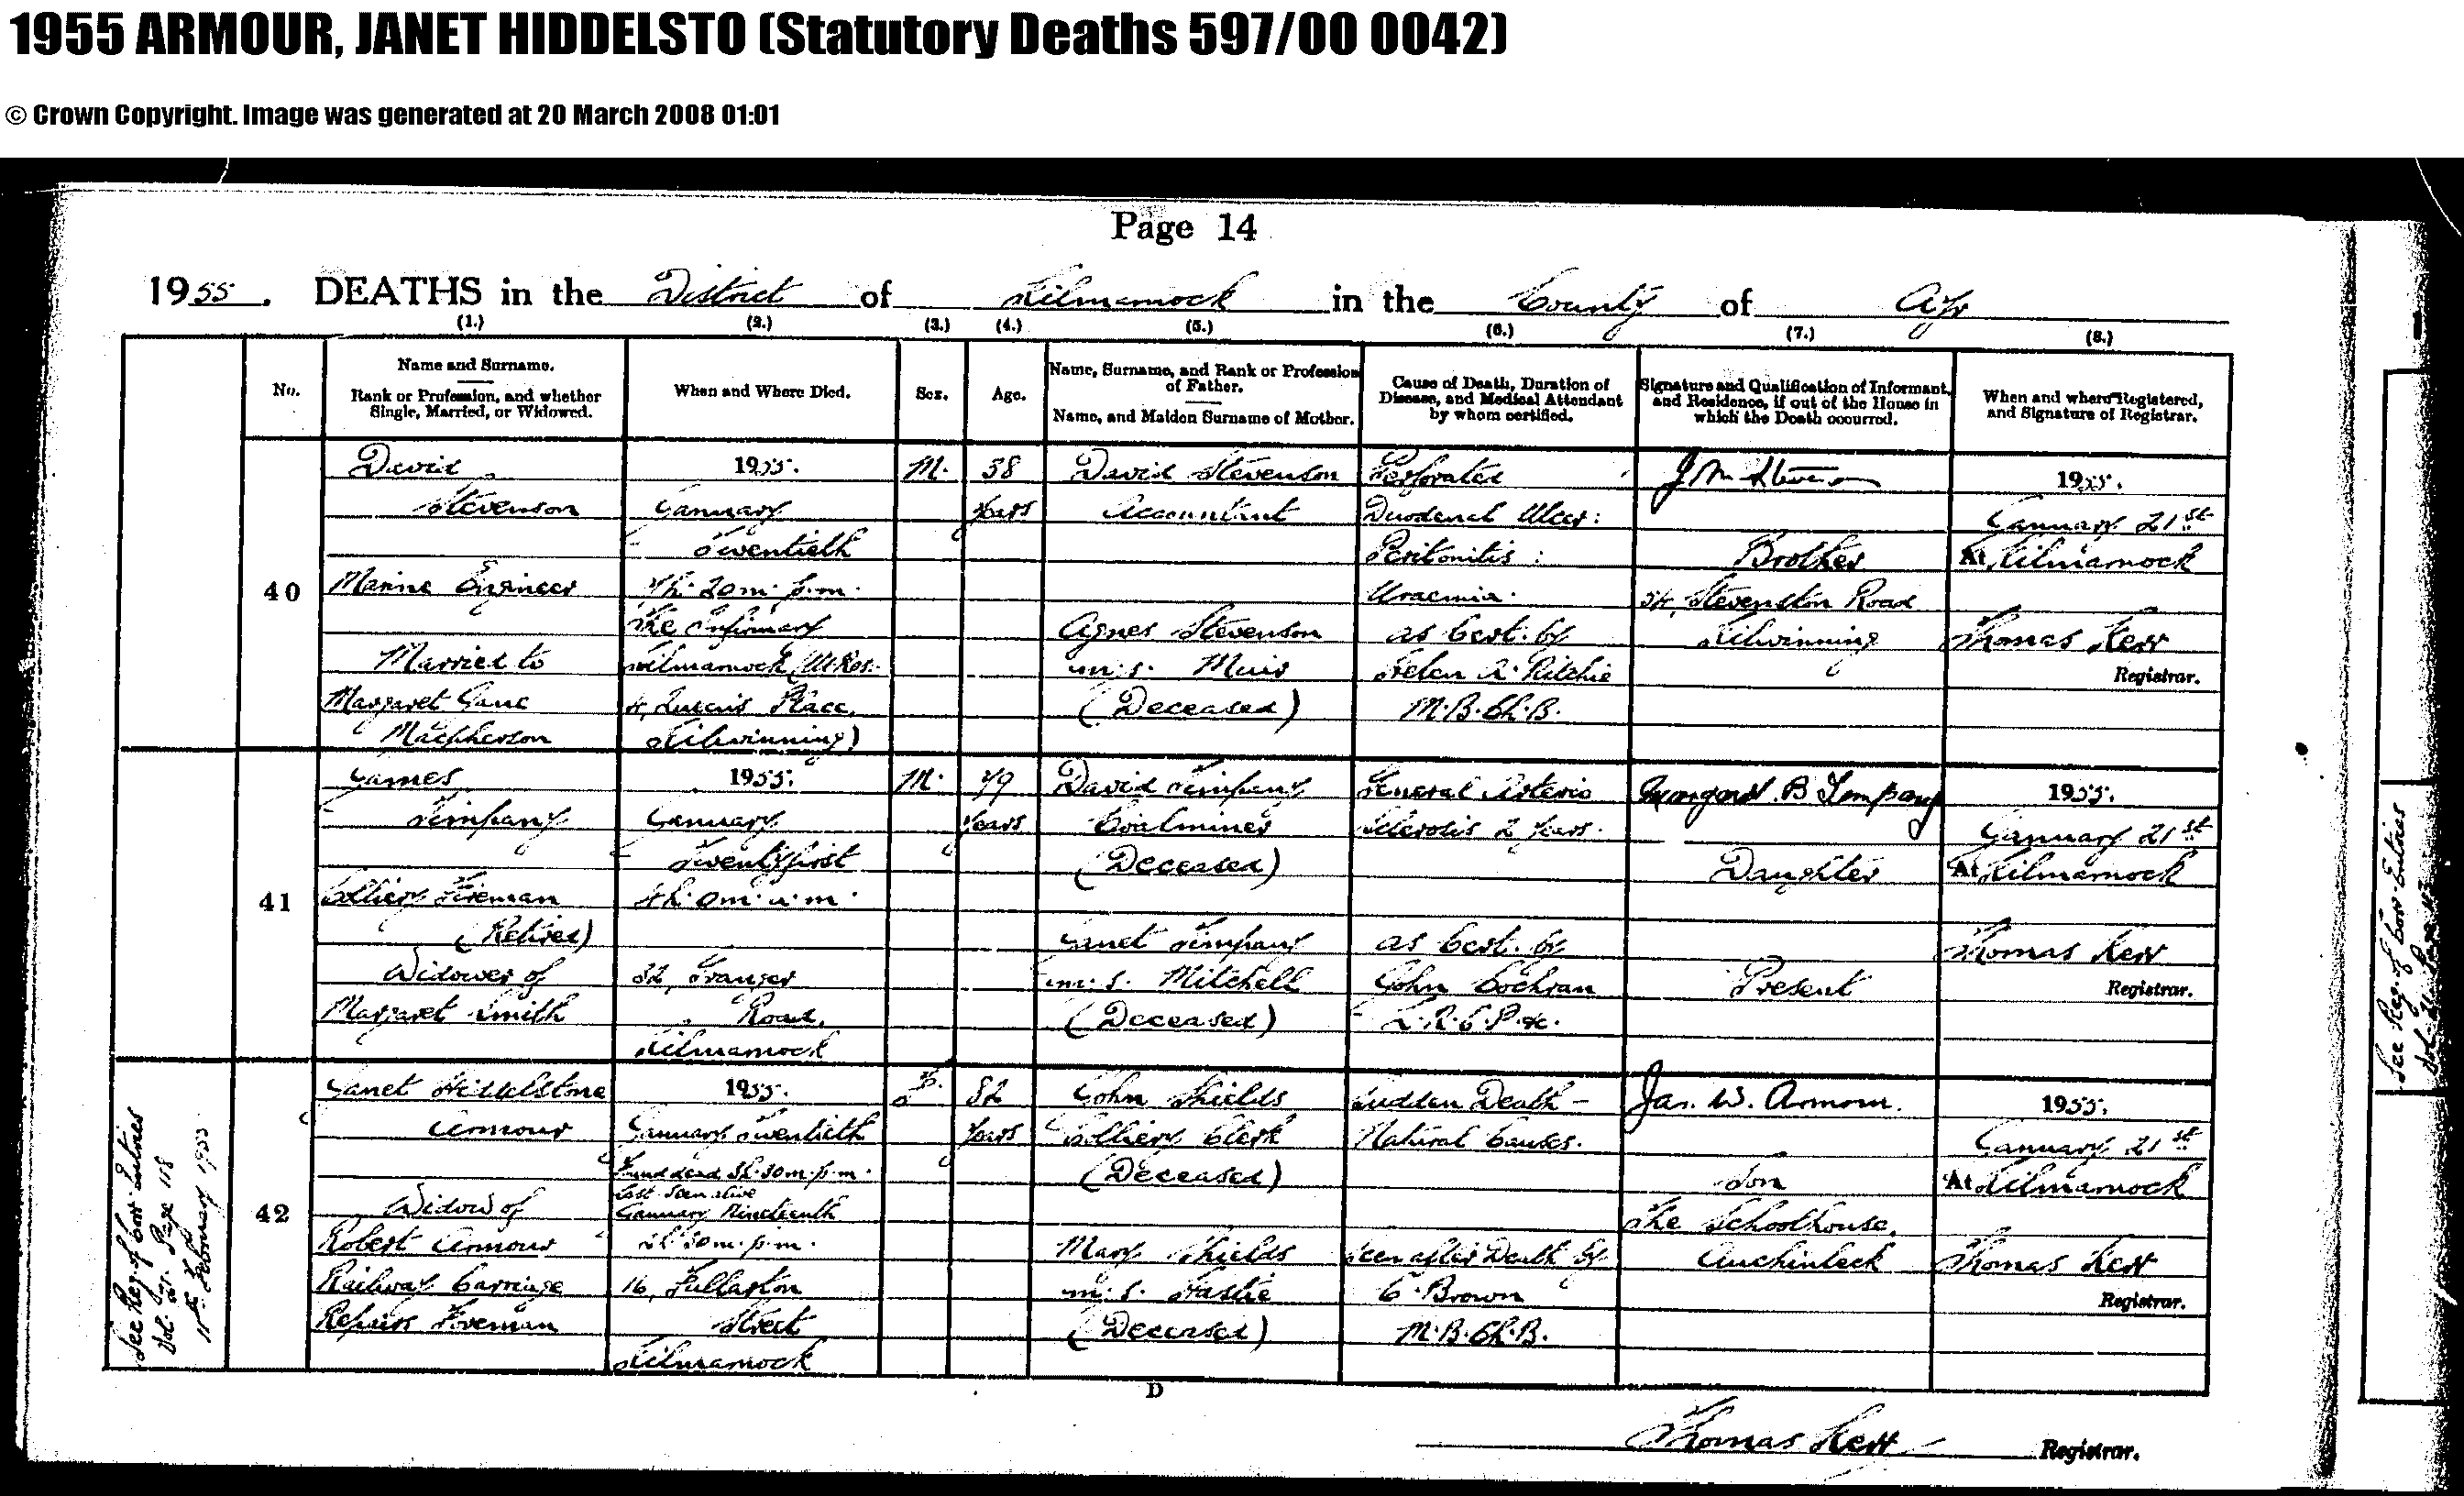 1955 ARMOUR, JANET HIDDELSTO (Statutory Deaths 597/00 0042)
© Crown Copyright. Image was generated at 20 March 2008 01:01
Page 14
1955. DEATHS in the District of Kilmarnock in the County of Ayr
(1.) (2.) (3.) (4.) (5.) (6.) (7.) (8.)
No.
Name and Surname.
Rank or Profession, and whether
Single, Married, or Widowed.
When and Where Died.
Sex.
Age.
Name, Surname, and Rank or Profession
of Father.
Name, and Maiden Surname of Mother.
Cause of Death, Duration of
Disease, and Medical Attendant
by whom certified.
Signature and Qualification of Informant,
and Residence, if out of the House in
which the Death occurred.
When and where Registered,
and Signature of Registrar.
40
David
Stevenson
Marine Engineer
Married to
Margaret Jane
Macpherson
1955.
January
Twentieth
h. 20m. p.m.
The Infirmary
Kilmarnock (U. Res.
4, Queens Place,
Kilwinning)
M.
58
Years
David Stevenson
Accountant
Agnes Stevenson
m.s. Muir
(Deceased)
Perforated
Duodenal Ulcer:
Peritonitis:
Uraemia.
as Cert. by
Helen A. Ritchie
M.B.Ch.B.
J M Stevenson
Brother
34, Stevenston Road
Kilwinning
1955.
January 21st
At Kilmarnock
Thomas Kerr
Registrar.
41
James
Timpany
Colliery Fireman
(Retired)
Widower of
Margaret Smith
1955.
January
Twentyfirst
4h. 0m. a.m.
32, Granger
Road,
Kilmarnock
M.
79
Years
David Timpany
Coalminer
(Deceased)
Janet Timpany
m.s. Mitchell
(Deceased)
General Arterio
Sclerosis 2 Years.
as Cert. by
John Cochran
L.R.C.P. &c.
Margaret B Timpany
Daughter
Present
1955.
January 21st
At Kilmarnock
Thomas Kerr
Registrar.
See Reg. of Corr. Entries
Vol. Page 118
11th February 1955
42
Janet Hiddelstone
Armour
Widow of
Robert Armour
Railway Carriage
Repairs Foreman
1955.
January Twentieth
Found dead 3h. 30m. p.m.
Last Seen alive
January Nineteenth
h. 30m. p.m.
16, Fullarton
Street
Kilmarnock
F.
82
Years
John Shields
Colliery Clerk
(Deceased)
Mary Shields
m.s. Hastie
(Deceased)
Sudden Death -
Natural Causes.
Seen after Death by
C. Brown
M.B.Ch.B.
Jas. W. Armour.
Son
The Schoolhouse,
Auchinleck
1955.
January 21st
At Kilmarnock
Thomas Kerr
Registrar.
D
Thomas Kerr Registrar.
See Reg. of Corr. Entries